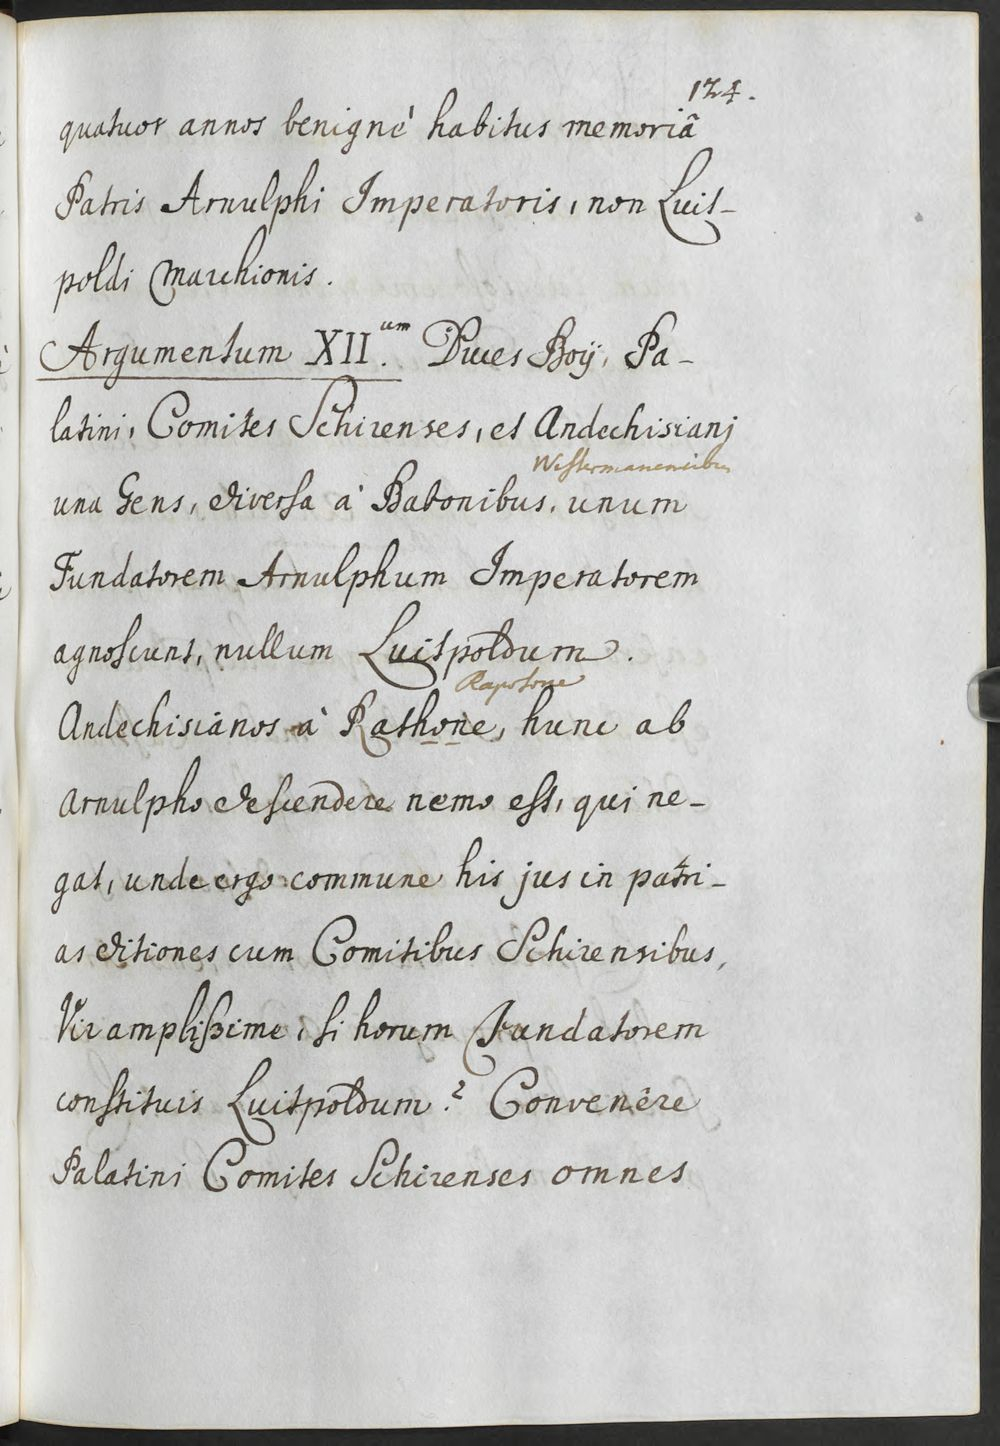 124.
quatuor annos benignè habitus memoriâ
Patris Arnulphi Imperatoris, non Luit-
poldi Marchionis.
Argumentum XII.um Duces Boÿ, Pa-
latini, Comites Schirenses, et Andechisianj
Westermanensibus
una Gens, diversa à Babonibus, unum
Fundatorem Arnulphum Imperatorem
agnoscunt, nullum Luitpoldum.
Rapotone
Andechisianos à Rathone, hunc ab
Arnulpho descendere nemo est, qui ne-
gat, unde ergo commune his jus in patri-
as ditiones cum Comitibus Schirensibus,
Vir amplissime, si horum Fundatorem
constituis Luitpoldum? Convenêre
Palatini Comites Schirenses omnes